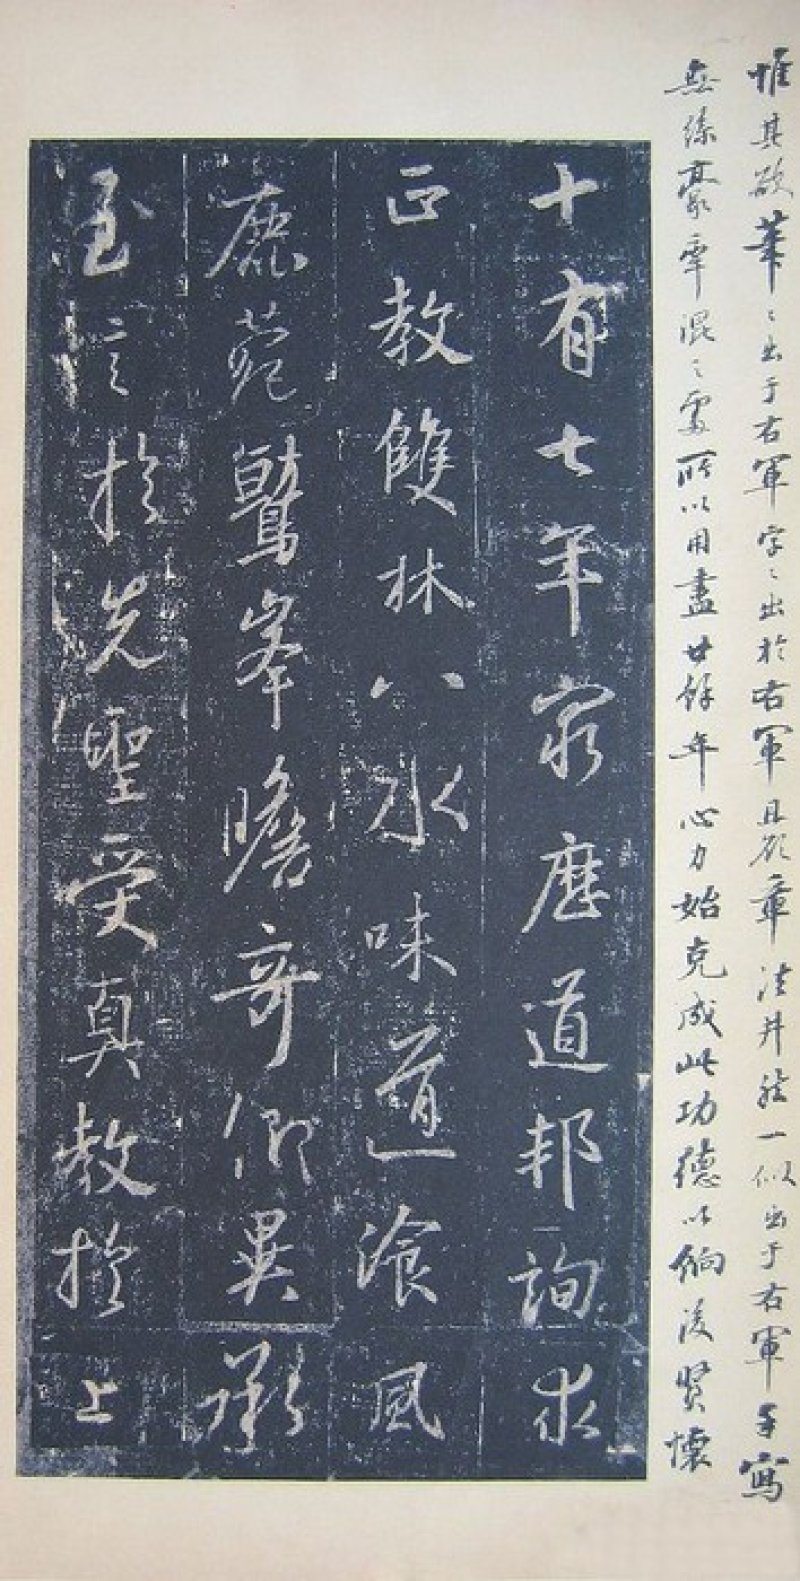 惟其欲筆〻出于右軍字〻出於右軍且欲章法井然一似出于右軍手寫
無絲豪牽混之處所以用盡廿餘年心力始克成此功德以餉後賢懷
十有七年窮歷道邦詢求
正教雙林八水味道飡風
鹿菀鷲峯瞻奇仰異承
至言於先聖受真教於上